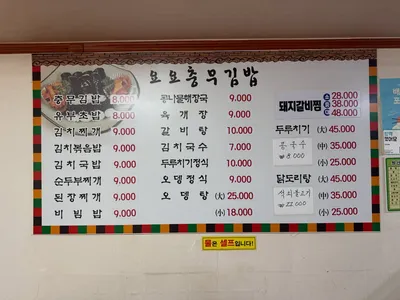 요요충무김밥
충무김밥 8.000
유부초밥 8.000
김치찌개 9.000
김치볶음밥 9.000
김치국밥 9.000
순두부찌개 9.000
된장찌개 9.000
비빔밥 9.000
콩나물해장국 9.000
육개장 9.000
갈비탕 10.000
김치국수 7.000
두루치기정식 10.000
오뎅정식 9.000
오뎅탕 (大) 25.000
(小) 18.000
돼지갈비찜 小 28.000
中 38.000
大 48.000
두루치기 (大) 45.000
콩국수 (中) 35.000
₩8,000 (小) 25.000
닭도리탕 (大) 45.000
(中) 35.000
₩22,000 (小) 25.000
물은 셀프입니다!